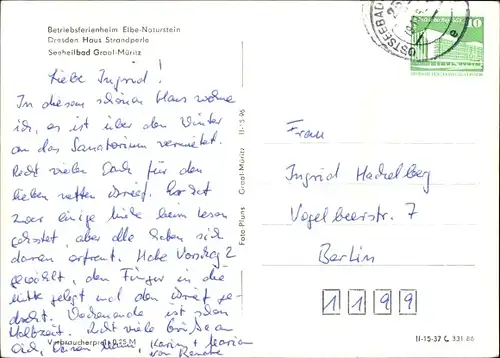 Betriebsferienheim Elbe-Naturstein
Dresden Haus Strandperle
Seeheilbad Graal-Müritz
Liebe Ingrid!
In diesem schönen Haus wohne
ich, es ist über den Winter
an das Sanatorium vermietet.
Recht vielen Dank für den
lieben netten Brief. Er hat
zwar einige beim Lesen
gekostet, aber alle haben sich
daran erfreut. Habe Vorschlag 2
gewählt, den Finger in die
Mitte gelegt und den Brief ge-
dreht. Wochenende ist schon
Halbzeit. Recht viele Grüße an
Dich, Karin + Marian
von Renate
Verbraucherpreis 0,25 M
Foto Pluns Graal-Müritz II-15-96
OSTSEEBAD
10
Frau
Ingrid Hackelberg
Vogelbeerstr. 7
Berlin
1 1 9 9
II-15-37 C 331 86